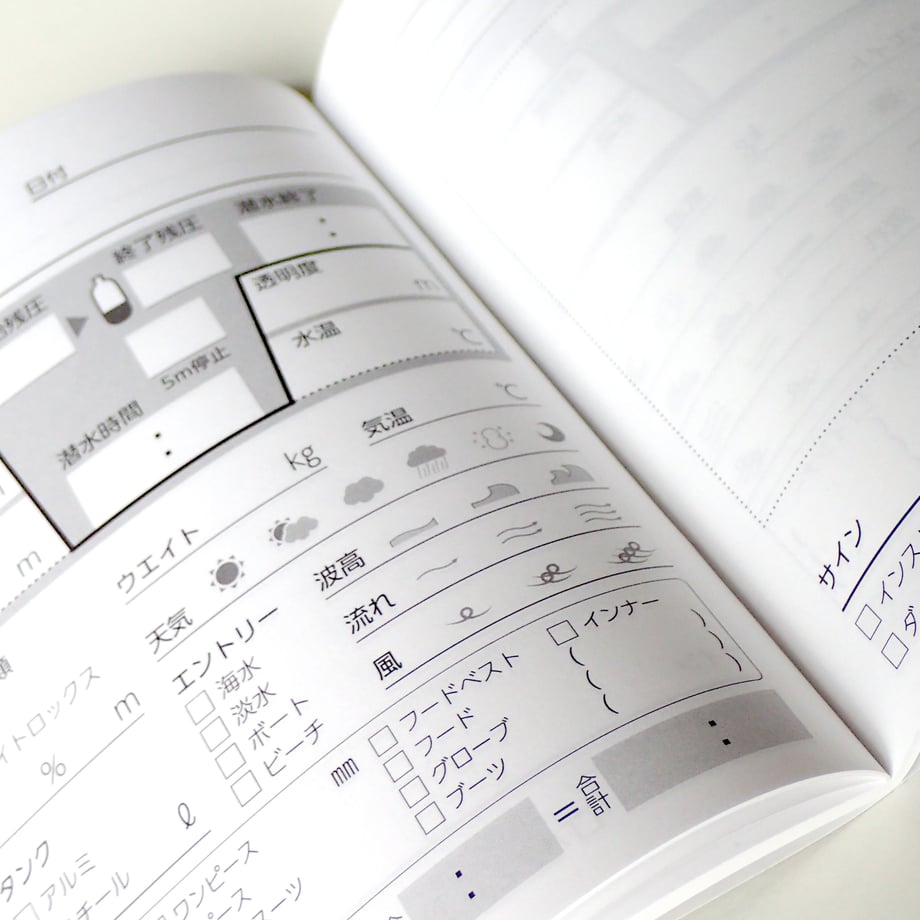 日付
終了残圧
潜水終了
:
残圧
透明度
m
5m停止
水温
℃
潜水時間
:
m
気温
℃
ウエイト
kg
天気
波高
流れ
風
エントリー
海水
淡水
ボート
ビーチ
イトロックス
m
%
mm
フードベスト
フード
グローブ
ブーツ
インナー
( )
( )
( )
タンク
ℓ
アルミ
チール
ワンピース
ピース
スーツ
:
=合計
:
サイン
インス
ダ